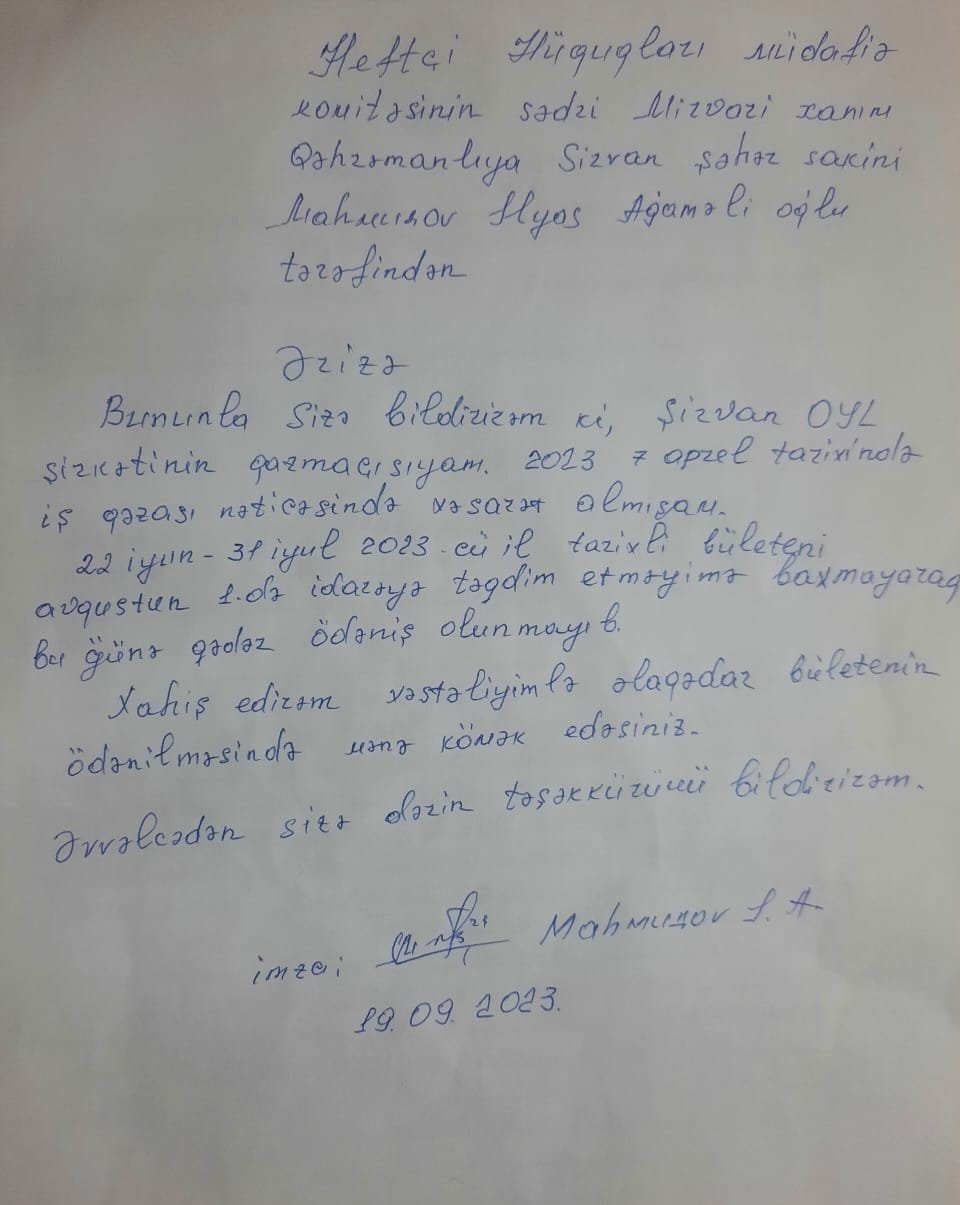 Neftçi Hüquqları müdafiə
komitəsinin sədri Mirvari xanım
Qəhrəmanlıya Şirvan şəhər sakini
Mahmudov İlyas Ağaməli oğlu
tərəfindən
Ərizə
Bununla Sizə bildirirəm ki, Şirvan OYL
şirkətinin qazmaçısıyam. 2023 7 aprel tarixində
iş qəzası nəticəsində xəsarət almışam.
22 iyun - 31 iyul 2023-cü il tarixli bületeni
avqustun 1.də idarəyə təqdim etməyimə baxmayaraq
bu günə qədər ödəniş olunmayıb.
Xahiş edirəm xəstəliyimlə əlaqədar bületenin
ödənilməsində mənə kömək edəsiniz.
Əvvəlcədən sizə dərin təşəkkürümü bildirirəm.
imza: Mahmudov İ. A.
19.09.2023.